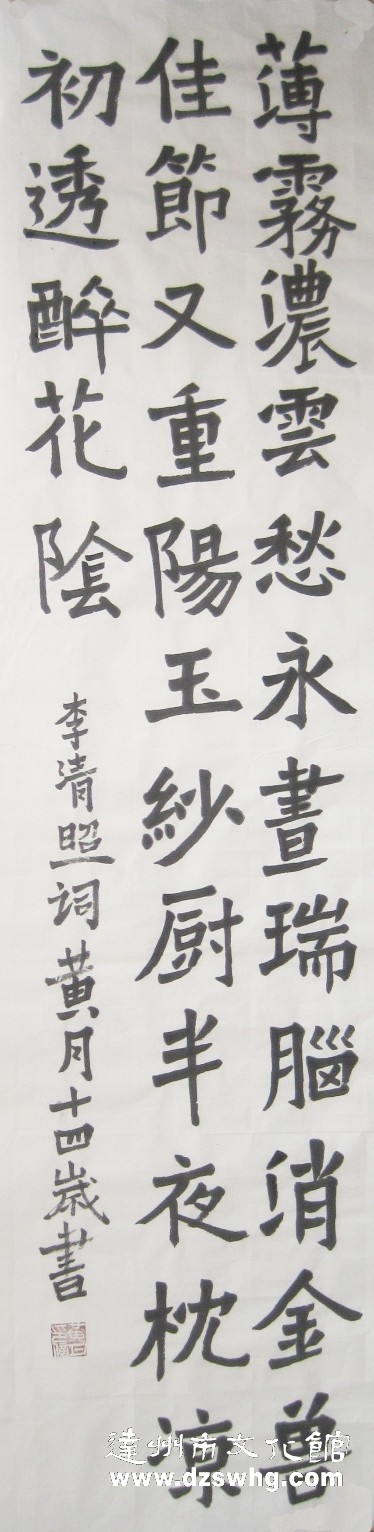 薄霧濃雲愁永晝瑞腦消金兽
佳節又重陽玉紗厨半夜枕凉
初透醉花陰
李清照词黄月十四歲書
達州市文化館
www.dzswhg.com